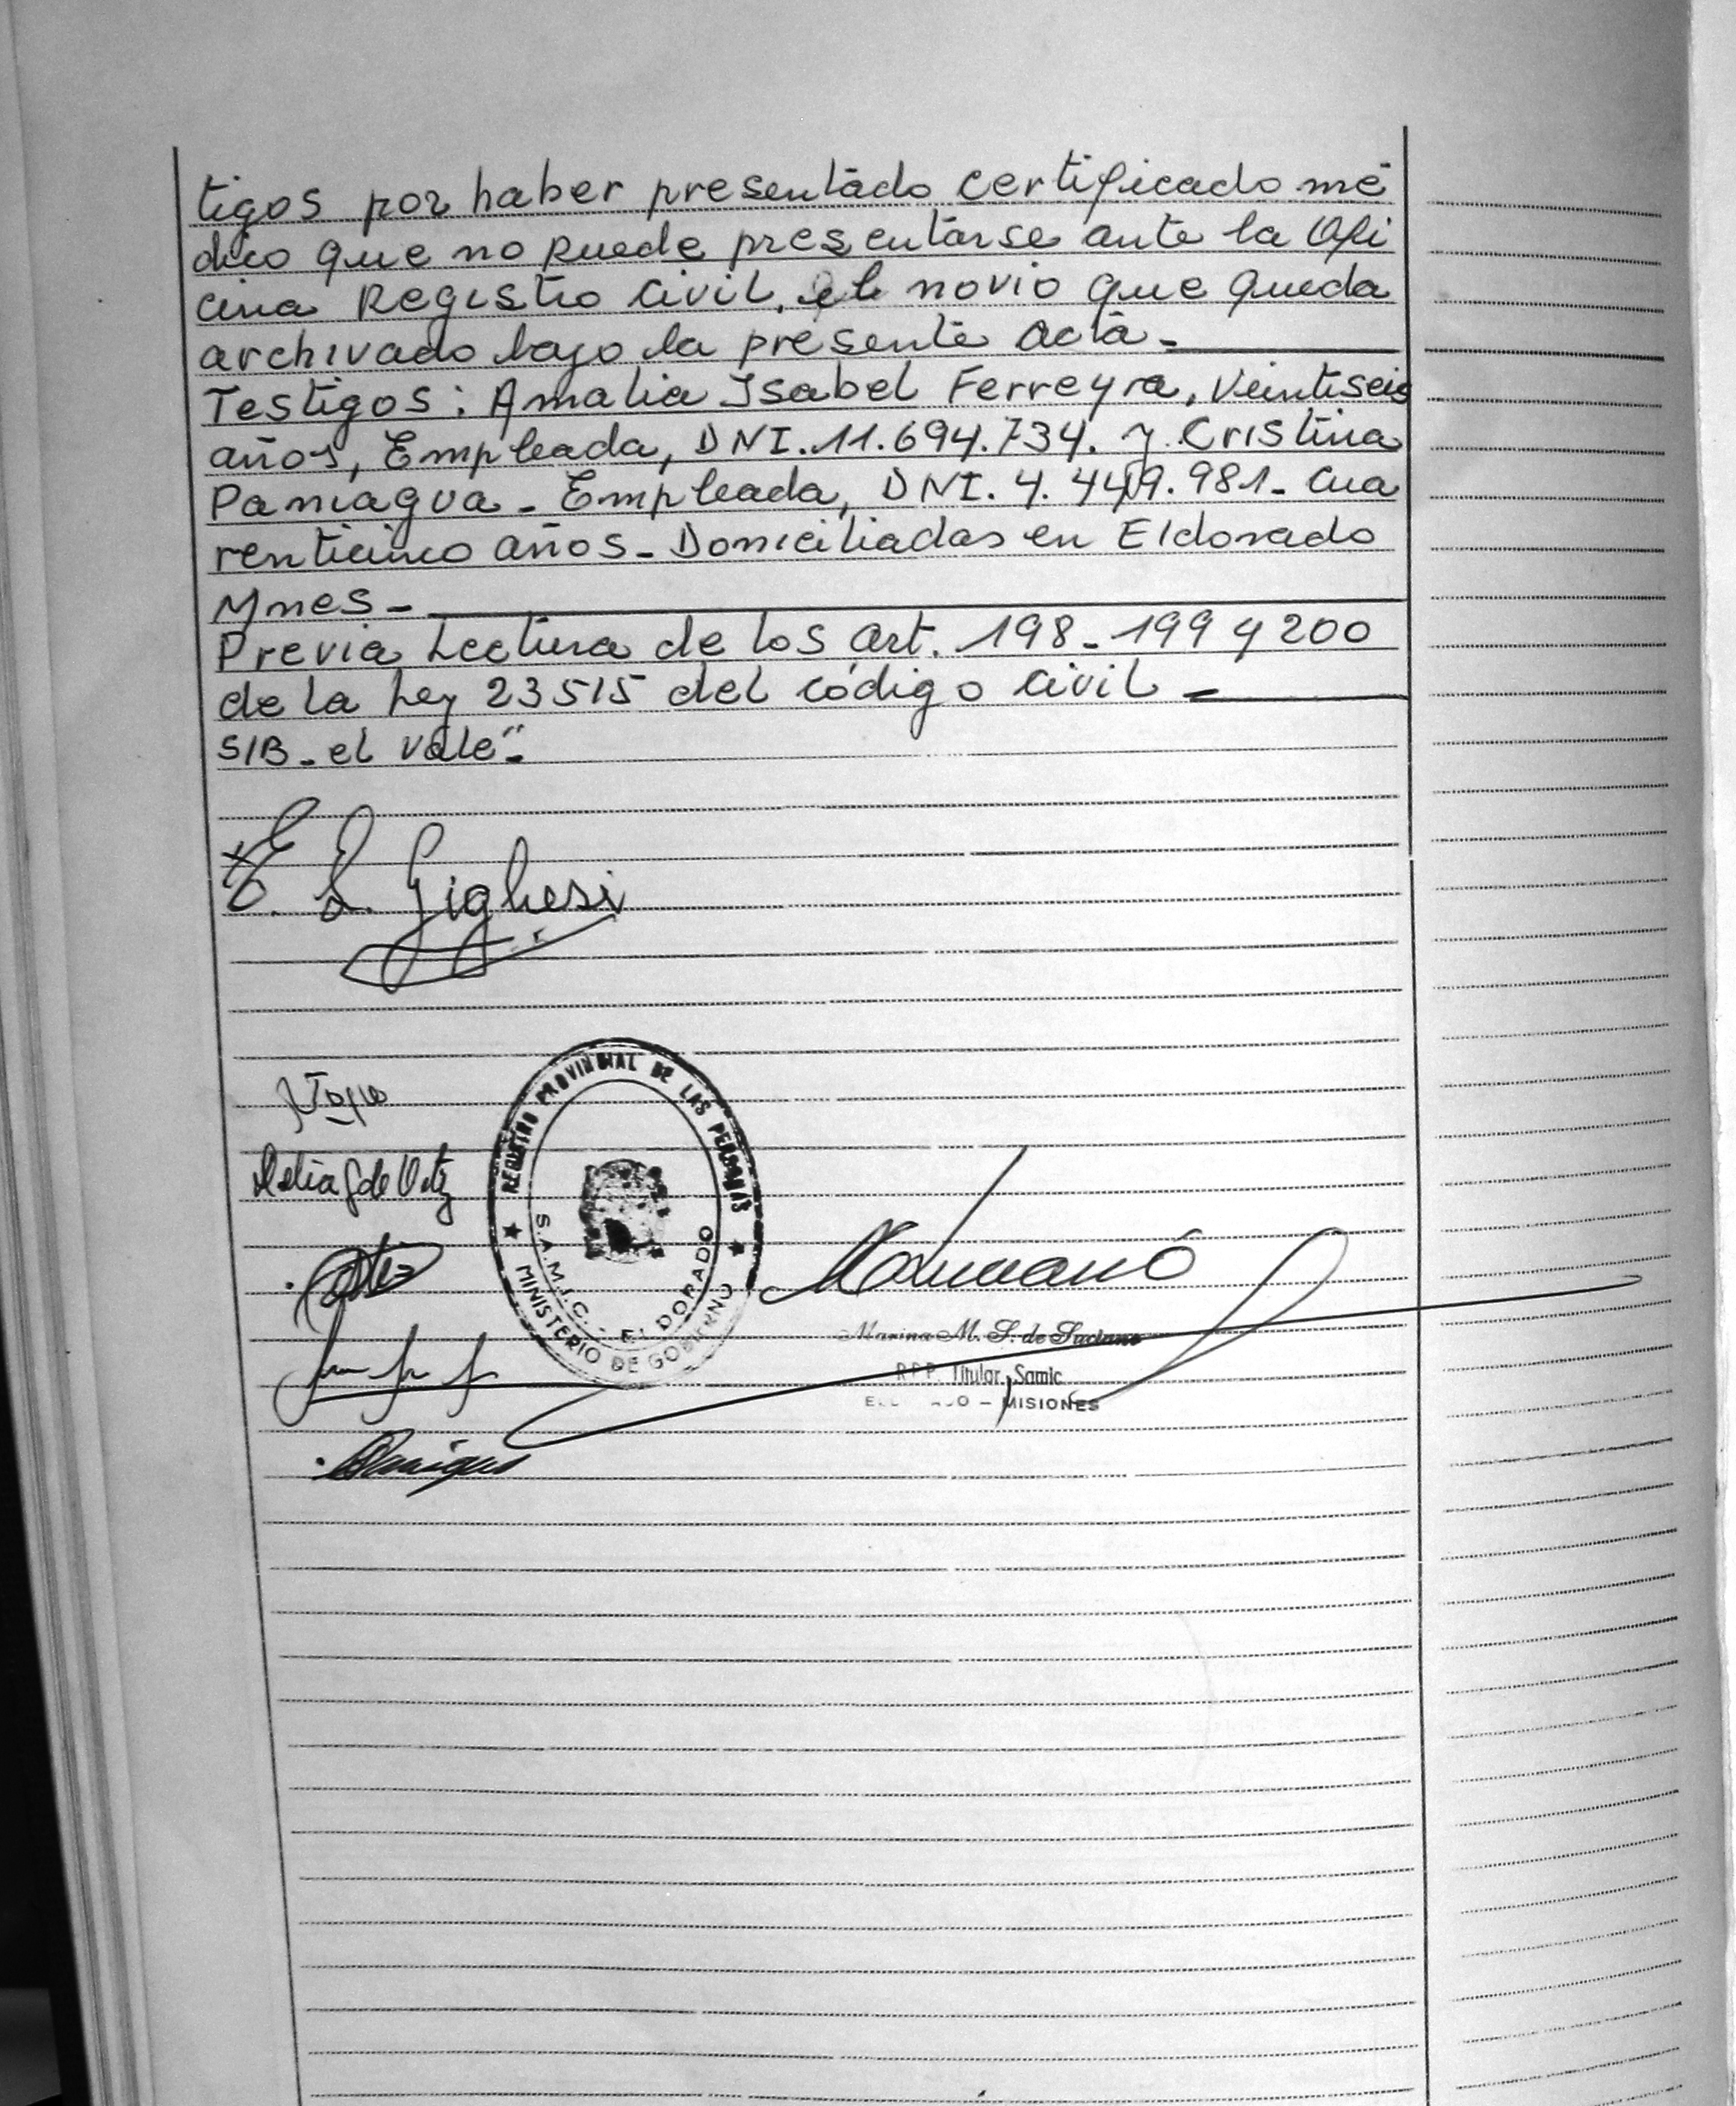 tigos por haber presentado certificado mé
dico que no puede presentarse ante la Ofi
cina Registro Civil, el novio que queda
archivado bajo la presente acta-
Testigos: Amalia Isabel Ferreyra, Veintiseis
años, Empleada, DNI. 11.694.734. y Cristina
Paniagua- Empleada, DNI. 4.449.981- Cua
renticinco años- Domiciliadas en Eldorado
Mnes-
Previa Lectura de los art. 198-199 y 200
de la Ley 23515 del código Civil-
S/B- el vale"-
Gighesi
REGISTRO PROVINCIAL DE LAS PERSONAS
S.A.M.I.C. - ELDORADO
MINISTERIO DE GOBIERNO
Delia G de Ortiz
Marina M. S. de Luciano
R.P.P. Titular Samic
MISIONES